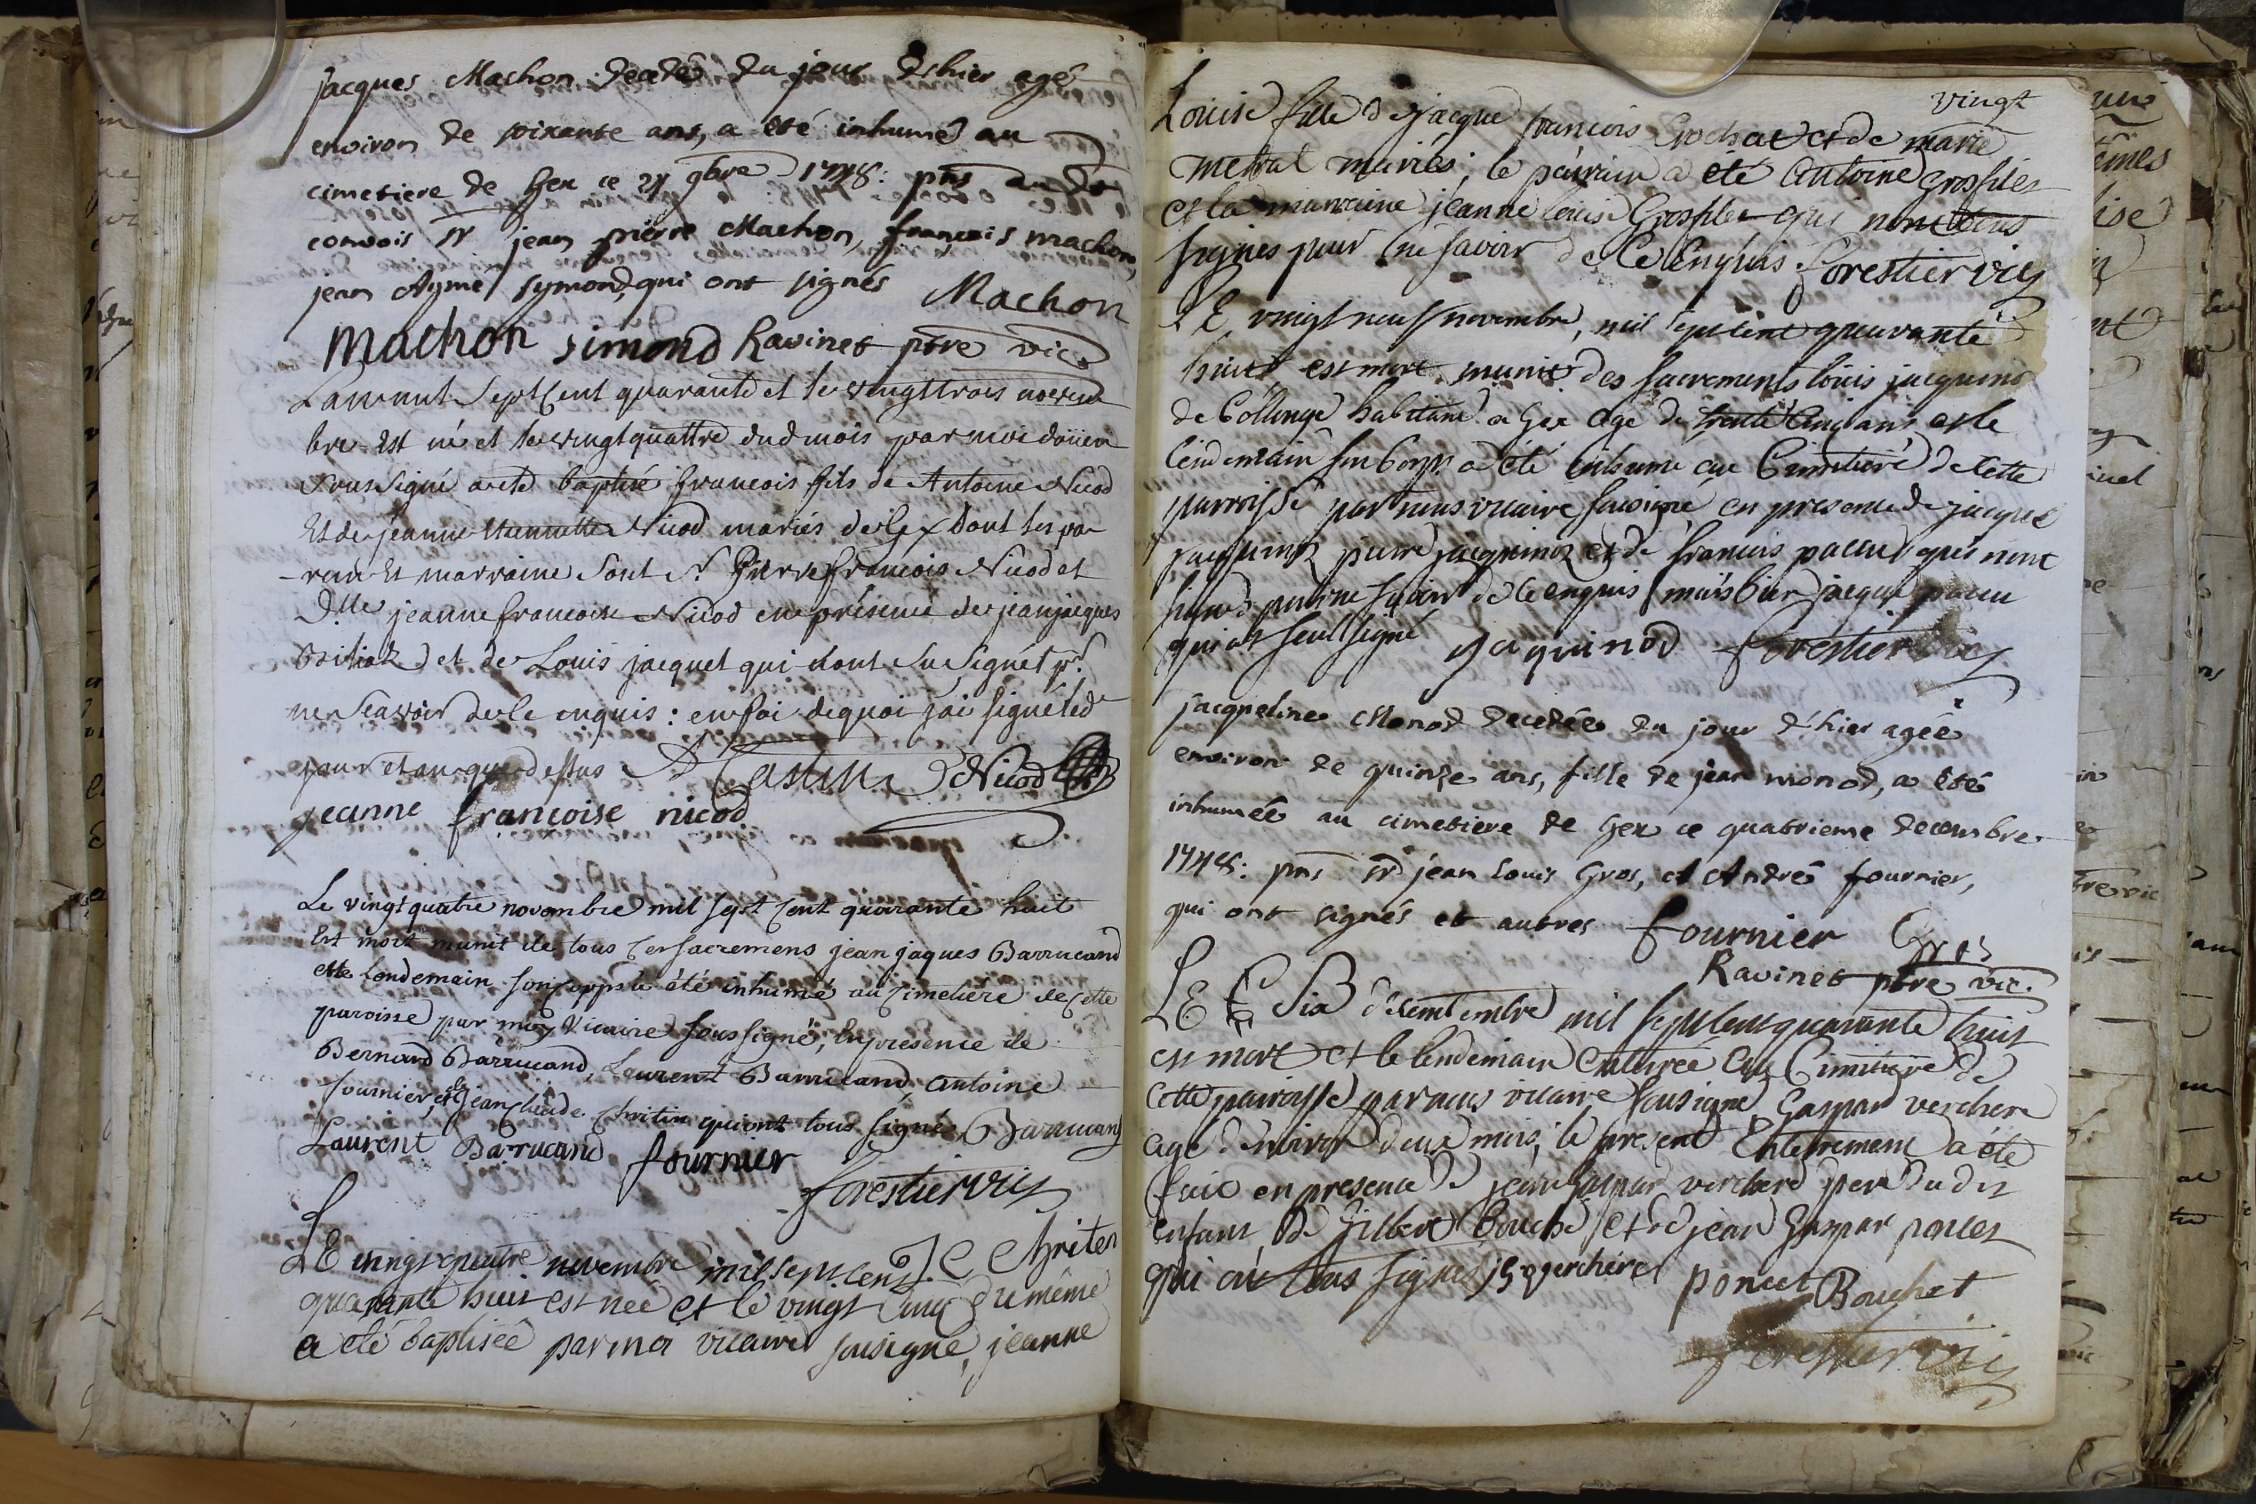 Jacques Machon decedé du jour dehier agé
environ de soixante ans, a été inhumé au
cimetiere de Gex ce 21 9bre 1748: pns au dt
convois Sr jean pierre Machon, francois machon,
jean Aymé Symond, qui ont signés Machon
Machon simond Ravinet ptre vic.
L'an mil Sept Cent quarante et le vingt trois novem
bre Est né et le vingt quattre dud mois par moi doüen
sous signé a eté baptisé francois fils de Antoine Nicod
Et de jeanne Nicod mariés de Gex dont les par
-rein Et marraine Sont Sr. Pierre francois Nicod et
Dlle jeanne francoise Nicod en présence de jean jacques
et de Louis jacquet qui n'ont su signer pr
ne Scavoir de ce enquis : en foi de quoi j'ai signé led
jour et an que dessus Castin Nicod
jeanne françoise nicod
Le vingt quatre novembre mil sept Cent quarante huit
Est mort munit de tous Ces sacremens jean jaques Barrucand
et le Lendemain son Corps a été inhumé au Cimetiére de Cette
paroisse par moy Vicaire Sous signé, En présence de
Bernard Barrucand, Laurent Barrucand, Antoine
fournier, et de jean Claude Chritin qui ont tous signés Barrucand
Laurent Barrucand fournier
forestier vic
J C Chriten
LE vingt quatre novembre mil sept cent
quarante huit est née et le vingt Cinq du même
a eté baptisée par moi vicaire sousigné, jeanne
vingt
Louise fille de jacque francois Crochat et de marie
metral mariés; le parrain a eté Antoine Grosfiler
et la marraine jeanne Louise Grosfiler qui n'ont
signés pour ne savoir de Ce Enquis. forestier vic
LE vingt neuf novembre, mil sept cent quarante
huit est mort munit des sacrements louis jacquinod
de Collonge habitant a Gex agé de trente Cinq ans et le
lendemain son Corps a été inhumé au Cimetiere de Cette
parroisse par nous vicaire sousigné en presence de jacque
jacquinod pierre jacquinod et de francois qui n'ont
signés pour ne savoir de ce enquis mais bien jacque
qui at seul signé jaquinod forestier vic
Jacqueline Monod decedée du jour d'hier agée
environ de quinze ans, fille de jean monod, a été
inhumée au cimetiere de Gex ce quatrieme decembre
1748: pns Sr jean Louis Gros, et André fournier,
qui ont signés et autres fournier Gros
Ravinet ptre vic.
LE Six decembre mil sept cent quarante huit
est mort et le lendemain enterrée au Cimitiere de
Cette parroisse par nous vicaire sousigné Gaspard verchere
agé d'environ deux mois; le present Enterrement a été
fait en presence de jean Gaspar verchere pere du dit
enfant, de Gilbert Bouché et de jean Gaspar poncet
qui ont tous signés JG verchere poncet Bouchet
forestier vic